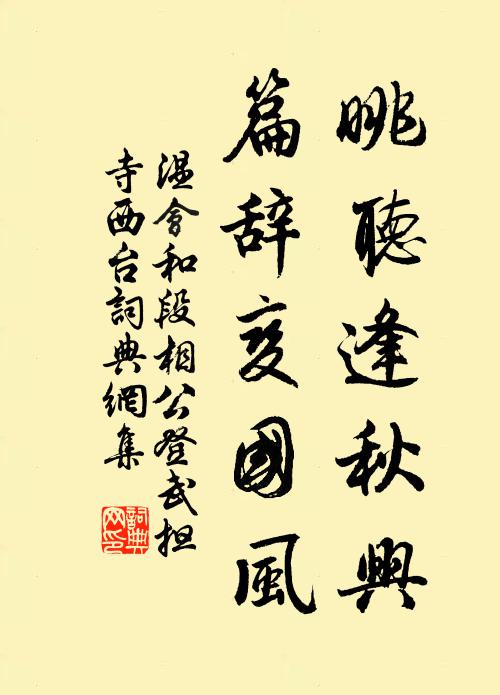 眺聽逢秋興
篇辞变國風
温會和段相公登武担
寺西台詞典網集
詞典
网印